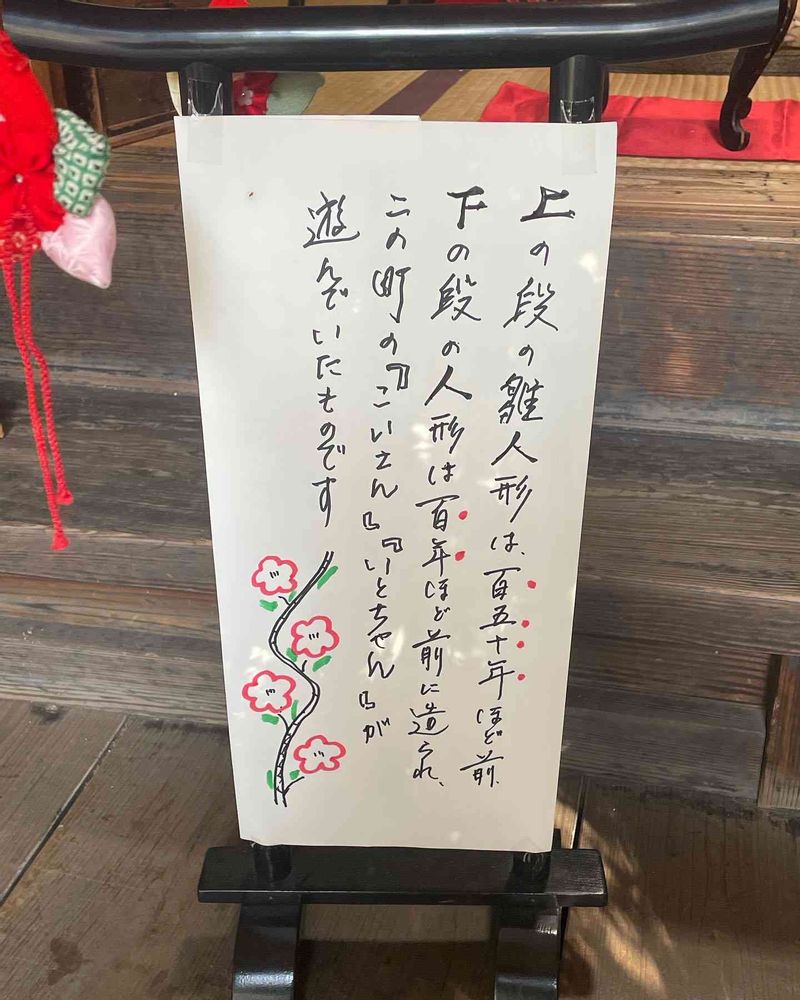 上の段の雛人形は、百五十年ほど前、
下の段の人形は百年ほど前に造られ、
この町の『こいさん』『いとちゃん』が
遊んでいたものです